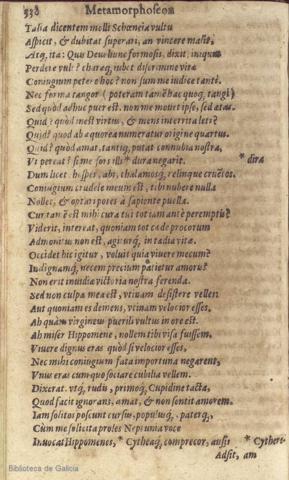 538 Metamorphoseon
Talia dicentem molli Schœneia vultu
Aspicit, & dubitat superari, an vincere malit,
Atq, ita: Quis Deus hunc formosis, dixit, iniquus
Perdere vult? charæq, iubet discrimine vitæ
Coniugium petere hoc? non sum me iudice tanti.
Nec forma tangor (poteram tamē hac quoq, tangi)
Sed quòd adhuc puer est. non me mouet ipse, sed ætas.
Quid? quòd inest virtus, & mens interrita leti?
Quid? quod ab æquorea numeratur origine quartus.
Quid? quòd amat, tanti?q, putat connubia nostra,
Vt pereat? si me fors illi * dura negarit. * dira
Dum licet hospes, abi, thalamosq, relinque cruētos.
Coniugium crudele meum est, tibi nubere nulla
Nollet, & optari potes à sapiente puella.
Cur tamē est mihi cura tui tot iam antè peremptis?
Viderit, intereat, quoniam tot cæde procorum
Admonitus non est, agiturq, in tædia vitæ.
Occidet hic igitur, voluit quia viuere mecum?
Indignamq, necem precium patietur amoris?
Non erit inuidiæ victoria nostra ferenda.
Sed non culpa mea est, vtinam desistere velles
Aut quoniam es demens, vtinam velocior esses.
Ah quàm virgineus puerili vultus in ore est.
Ah miser Hippomene, nollem tibi visa fuissem.
Viuere dignus eras quòd si felicior esses,
Nec mihi coniugium fata importuna negarent,
Vnus eras cum quo sociare cubilia vellem.
Dixerat. vtq, rudis, primoq, Cupidine tacta,
Quod facit ignorans, amat, & non sentit amorem.
Iam solitos poscunt cursus, populusq, paterq,
Cùm me sollicita proles Neptunia voce
Inuocat Hippomenes, * Cytheaq, comprecor, ausis * Cytheri-
Adsit, am
Biblioteca de Galicia